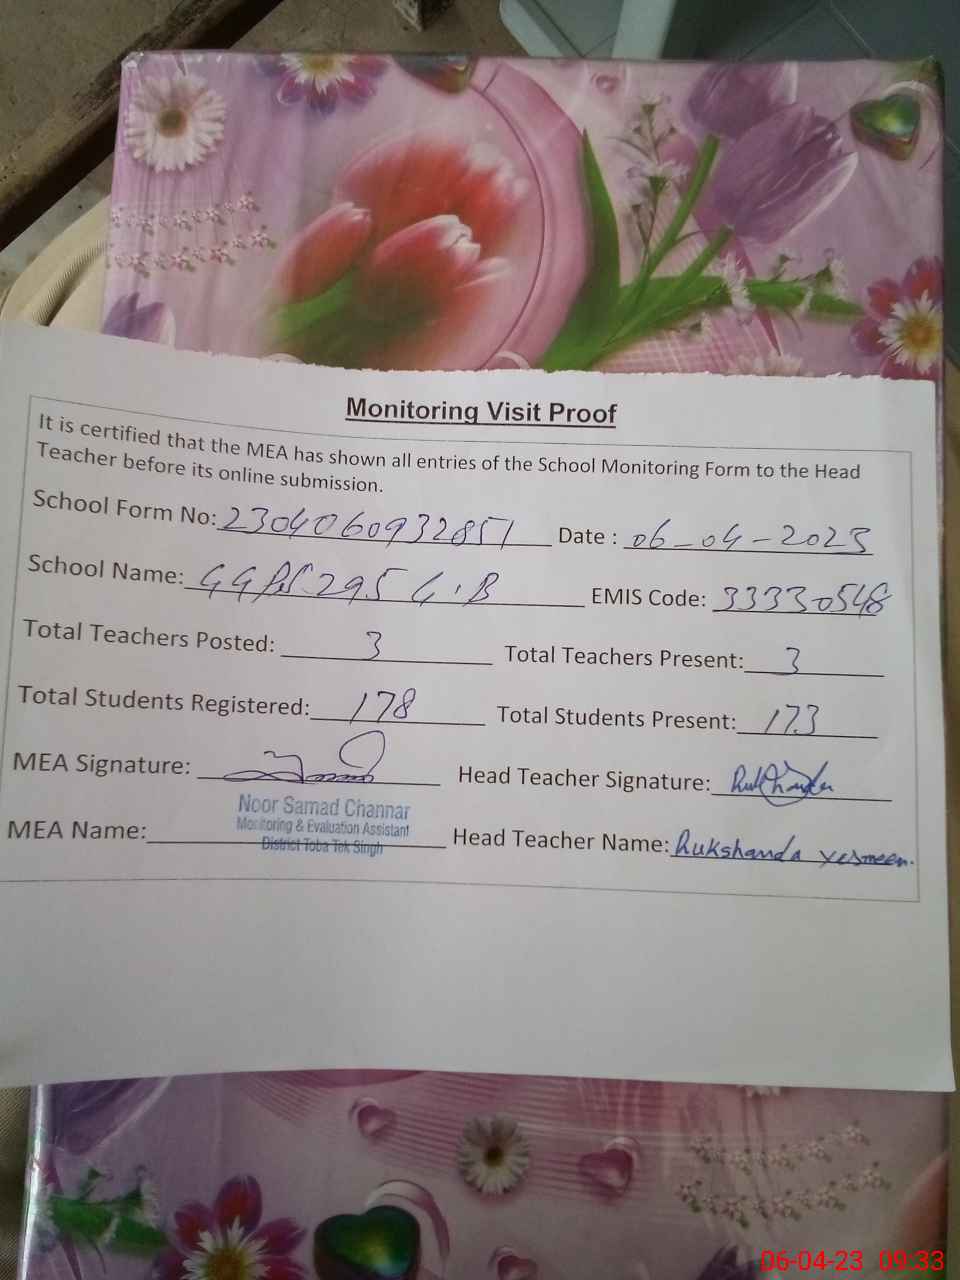 Monitoring Visit Proof
It is certified that the MEA has shown all entries of the School Monitoring Form to the Head
Teacher before its online submission.
School Form No: 2304060932851 Date : 06-04-2023
School Name: GGPS 295 G.B EMIS Code: 33330548
Total Teachers Posted: 3 Total Teachers Present: 3
Total Students Registered: 178 Total Students Present: 173
MEA Signature: Head Teacher Signature:
Noor Samad Channar
Monitoring & Evaluation Assistant
District Toba Tek Singh
MEA Name: Head Teacher Name: Rukshanda Yesmeen.
06-04-23 09:33